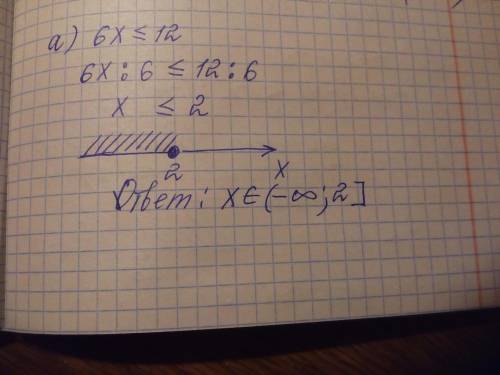 а) 6x ≤ 12
6x : 6 ≤ 12 : 6
x ≤ 2
2 x
Ответ: x ∈ (-∞; 2]